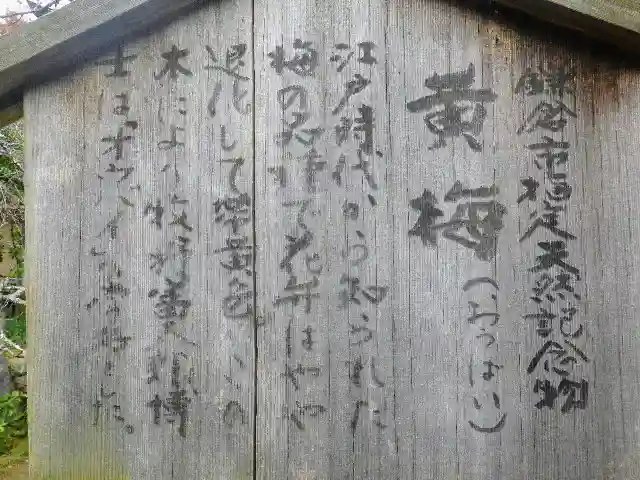 鎌倉市指定天然記念物
黄梅（おうばい）
江戸時代から知られた
梅の名種で花弁はやや
退化して帯黄色。この
木により牧野富太郎博
士は「オウバイ」と命名した。